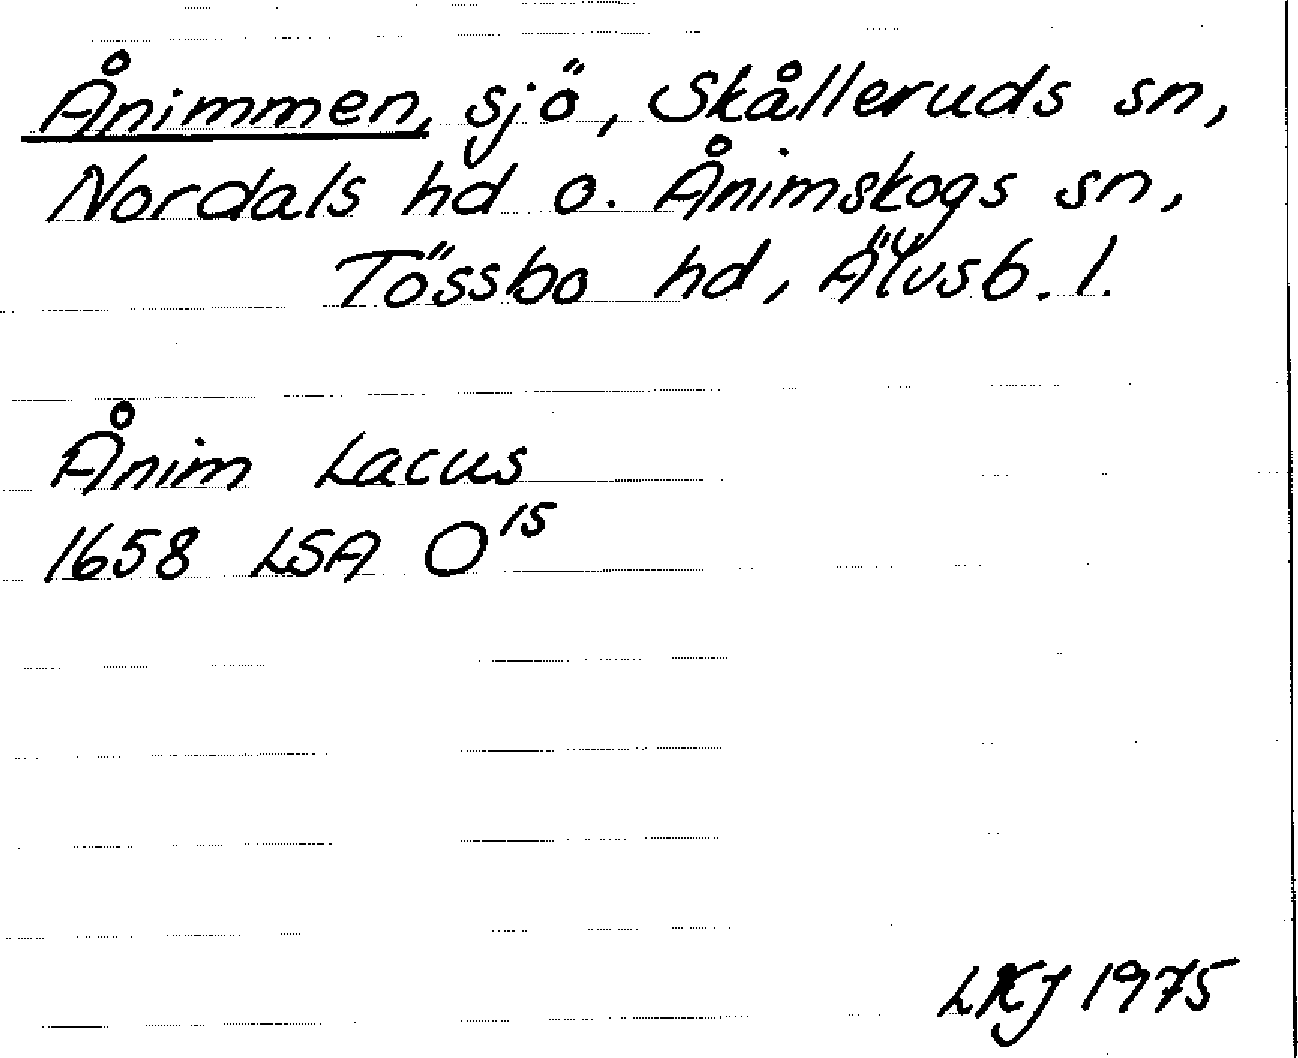 Ånimmen, sjö, Skålleruds sn,
Nordals hd o. Ånimskogs sn,
Tössbo hd, Älvsb. l.
Ånim Lacus
1658 LSA O¹⁵
LKJ 1975